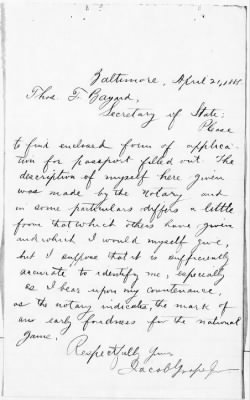 Baltimore, April 21, 1888.
Thos. F. Bayard,
Secretary of State:
Please
to find enclosed form of applica-
tion for passport filled out. The
description of myself here given
was made by the Notary and
in some particulars differs a little
from that which others have given
and which I would myself give,
but I suppose that it is sufficiently
accurate to identify me, especially
as I bear upon my countenance,
as the notary indicates, the mark of
an early fondness for the national
game.
Respectfully Yours
Jacob